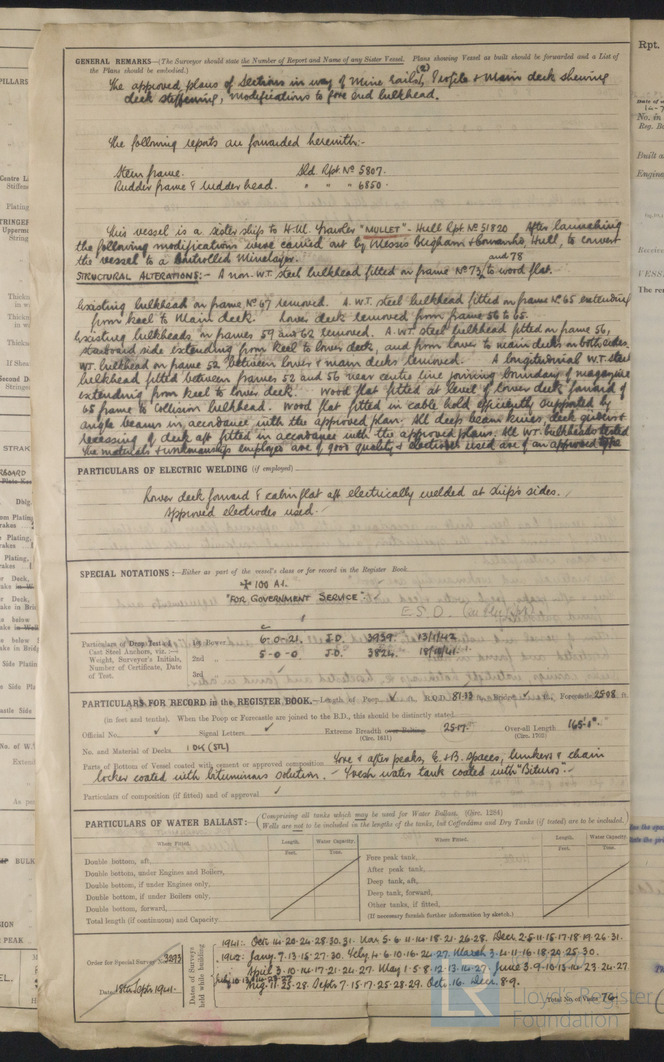 GENERAL REMARKS—(The Surveyor should state the Number of Report and Name of any Sister Vessel. Plans showing Vessel as built should be forwarded and a List of
the Plans should be embodied.)
(2)
The approved plans of Sections in way of Mine rails, Profile & Main deck shewing
deck stiffening, modifications to fore end bulkhead.
The following reports are forwarded herewith:-
Stern frame. Sld. Rpt. No 5807.
Rudder frame & rudder head. " " " 6850.
This vessel is a sister ship to H.M. Trawler "MULLET" - Hull Rpt. No 51820 After launching
the following modifications were carried out by Messrs Brigham & Cowan Ltd, Hull, to convert
the vessel to a Controlled Minelayer.
and 78
STRUCTURAL ALTERATIONS:- A non. W.T. steel bulkhead fitted on frame No 73, to wood flat.
Existing bulkhead on frame No 47 removed. A W.T. steel bulkhead fitted on frame No 65 extending
from keel to Main deck. Lower deck removed from frame 56 to 65.
Existing bulkheads on frames 59 and 62 removed. A W.T. steel bulkhead fitted on frame 56,
starboard side extending from keel to lower deck, and from lower to main decks on both sides.
W.T. bulkhead on frame 52 between lower & main decks removed. A longitudinal W.T. steel
bulkhead fitted between frames 52 and 56 near centre line joining boundary of magazine
extending from keel to lower deck. Wood flat fitted at level of lower deck forward of
65 frame to Collision bulkhead. Wood flat fitted in cable hold efficiently supported by
angle beams in accordance with the approved plan. All deep beam knees, deck girders &
recessing of deck aft fitted in accordance with the approved plans. All W.T. bulkheads tested
The materials & workmanship employed are of good quality & electrodes used are of an approved type
PARTICULARS OF ELECTRIC WELDING (if employed)
Lower deck forward & cabin flat aft electrically welded at ship's sides.
Approved electrodes used.
SPECIAL NOTATIONS:—Either as part of the vessel's class or for record in the Register Book
✠ 100 A1.
"FOR GOVERNMENT SERVICE"
E.S.D.
Particulars of Drop Test of Cast Steel Anchors, viz.:— Weight, Surveyor's Initials, Number of Certificate, Date of Test.
1st Bower 6-0-21. J.D. 3959. 13/1/42
2nd " 5-0-0 J.D. 3824.
3rd "
PARTICULARS FOR RECORD in the REGISTER BOOK.—Length of Poop ✓ 81.13 Bridge ✓ ft. Forecastle 25.08 ft.
(in feet and tenths). When the Poop or Forecastle are joined to the B.D., this should be distinctly stated
Official No. ✓ Signal Letters ✓ Extreme Breadth over Plating 25.17 (Circ. 1611) Over-all Length 165.1 (Circ. 1703)
No. and Material of Decks. 1 DK (STL)
Parts of Bottom of Vessel coated with cement or approved composition Fore & after peaks, E. & B. spaces, bunkers & chain
locker coated with bituminous solution. - Fresh water tank coated with "Bituros".-
Particulars of composition (if fitted) and of approval ✓
PARTICULARS OF WATER BALLAST:— (Comprising all tanks which may be used for Water Ballast. (Circ. 1284)
Wells are not to be included in the lengths of the tanks, but Cofferdams and Dry Tanks (if tested) are to be included.)
Where Fitted. Length. Water Capacity. Where Fitted. Length. Water Capacity.
Feet. Tons. Feet. Tons.
Double bottom, aft, Fore peak tank,
Double bottom, under Engines and Boilers, After peak tank,
Double bottom, if under Engines only, Deep tank, aft,
Double bottom, if under Boilers only, Deep tank, forward,
Double bottom, forward, Other tanks, if fitted,
Total length (if continuous) and Capacity (If necessary furnish further information by sketch.)
Order for Special Survey No. 3293
Date 18th Sept 1941.
Dates of Surveys held while building
1941:- Oct. 14-20-24-28-30-31. Nov. 5-6-11-14-18-21-26-28. Decr. 2-5-11-15-17-18-19-26-31.
1942:- Jany. 7-13-15-27-30. Feby. 4-6-10-16-24-27. March 3-4-11-16-18-20-25-30.
April 3-10-14-17-21-24-27. May 1-5-8-12-13-14-27. June 3-9-10-13-14-23-24-27.
Aug. 11-25-28. Septr. 7-15-17-25-28-29. Oct. 16. Decr. 8-9.
Total No. of Visits 76
Lloyd's Register
Foundation
Rpt.